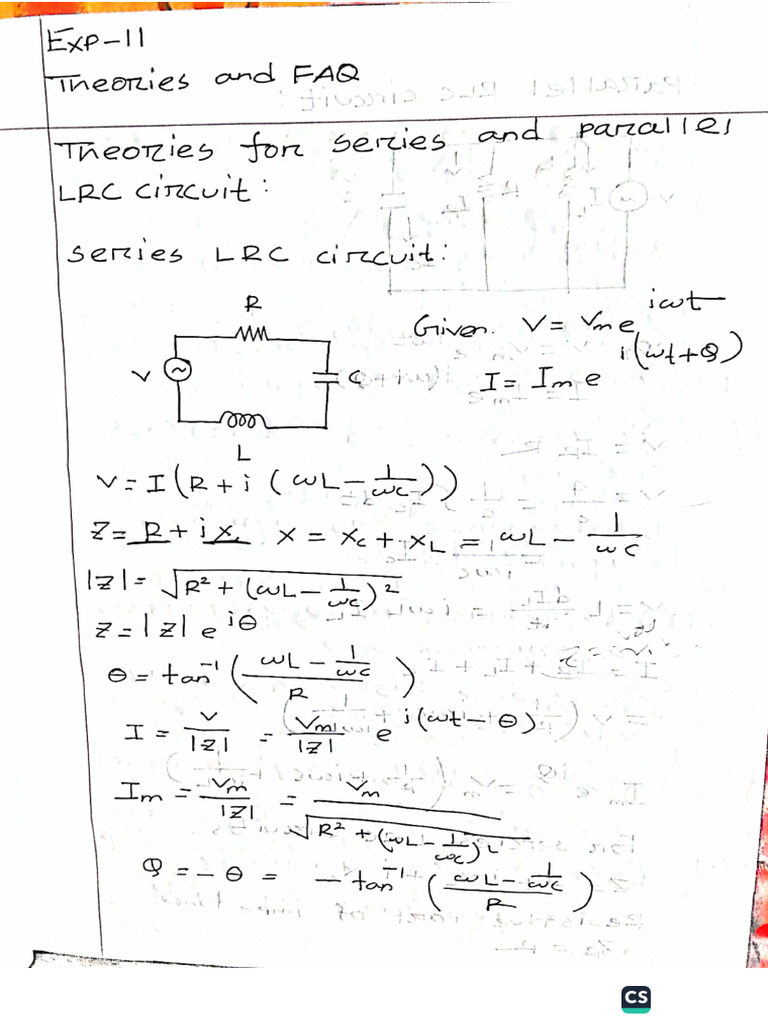 Exp-11
Theories and FAQ
Theories for series and parallel
LRC circuit:
series LRC circuit:
R
V
C
L
Given. V = Vm e^{iωt}
I = Im e^{i(ωt+φ)}
V = I (R + i (ωL - 1/ωC))
Z = R + i x, X = Xc + XL = ωL - 1/ωC
|Z| = √(R² + (ωL - 1/ωC)²)
Z = |Z| e^{iθ}
θ = tan⁻¹ ((ωL - 1/ωC)/R)
I = V/|Z| = Vm/|Z| e^{i(ωt-θ)}
Im = Vm/|Z| = Vm/√(R² + (ωL - 1/ωC)²)
φ = -θ = -tan⁻¹ ((ωL - 1/ωC)/R)
CS